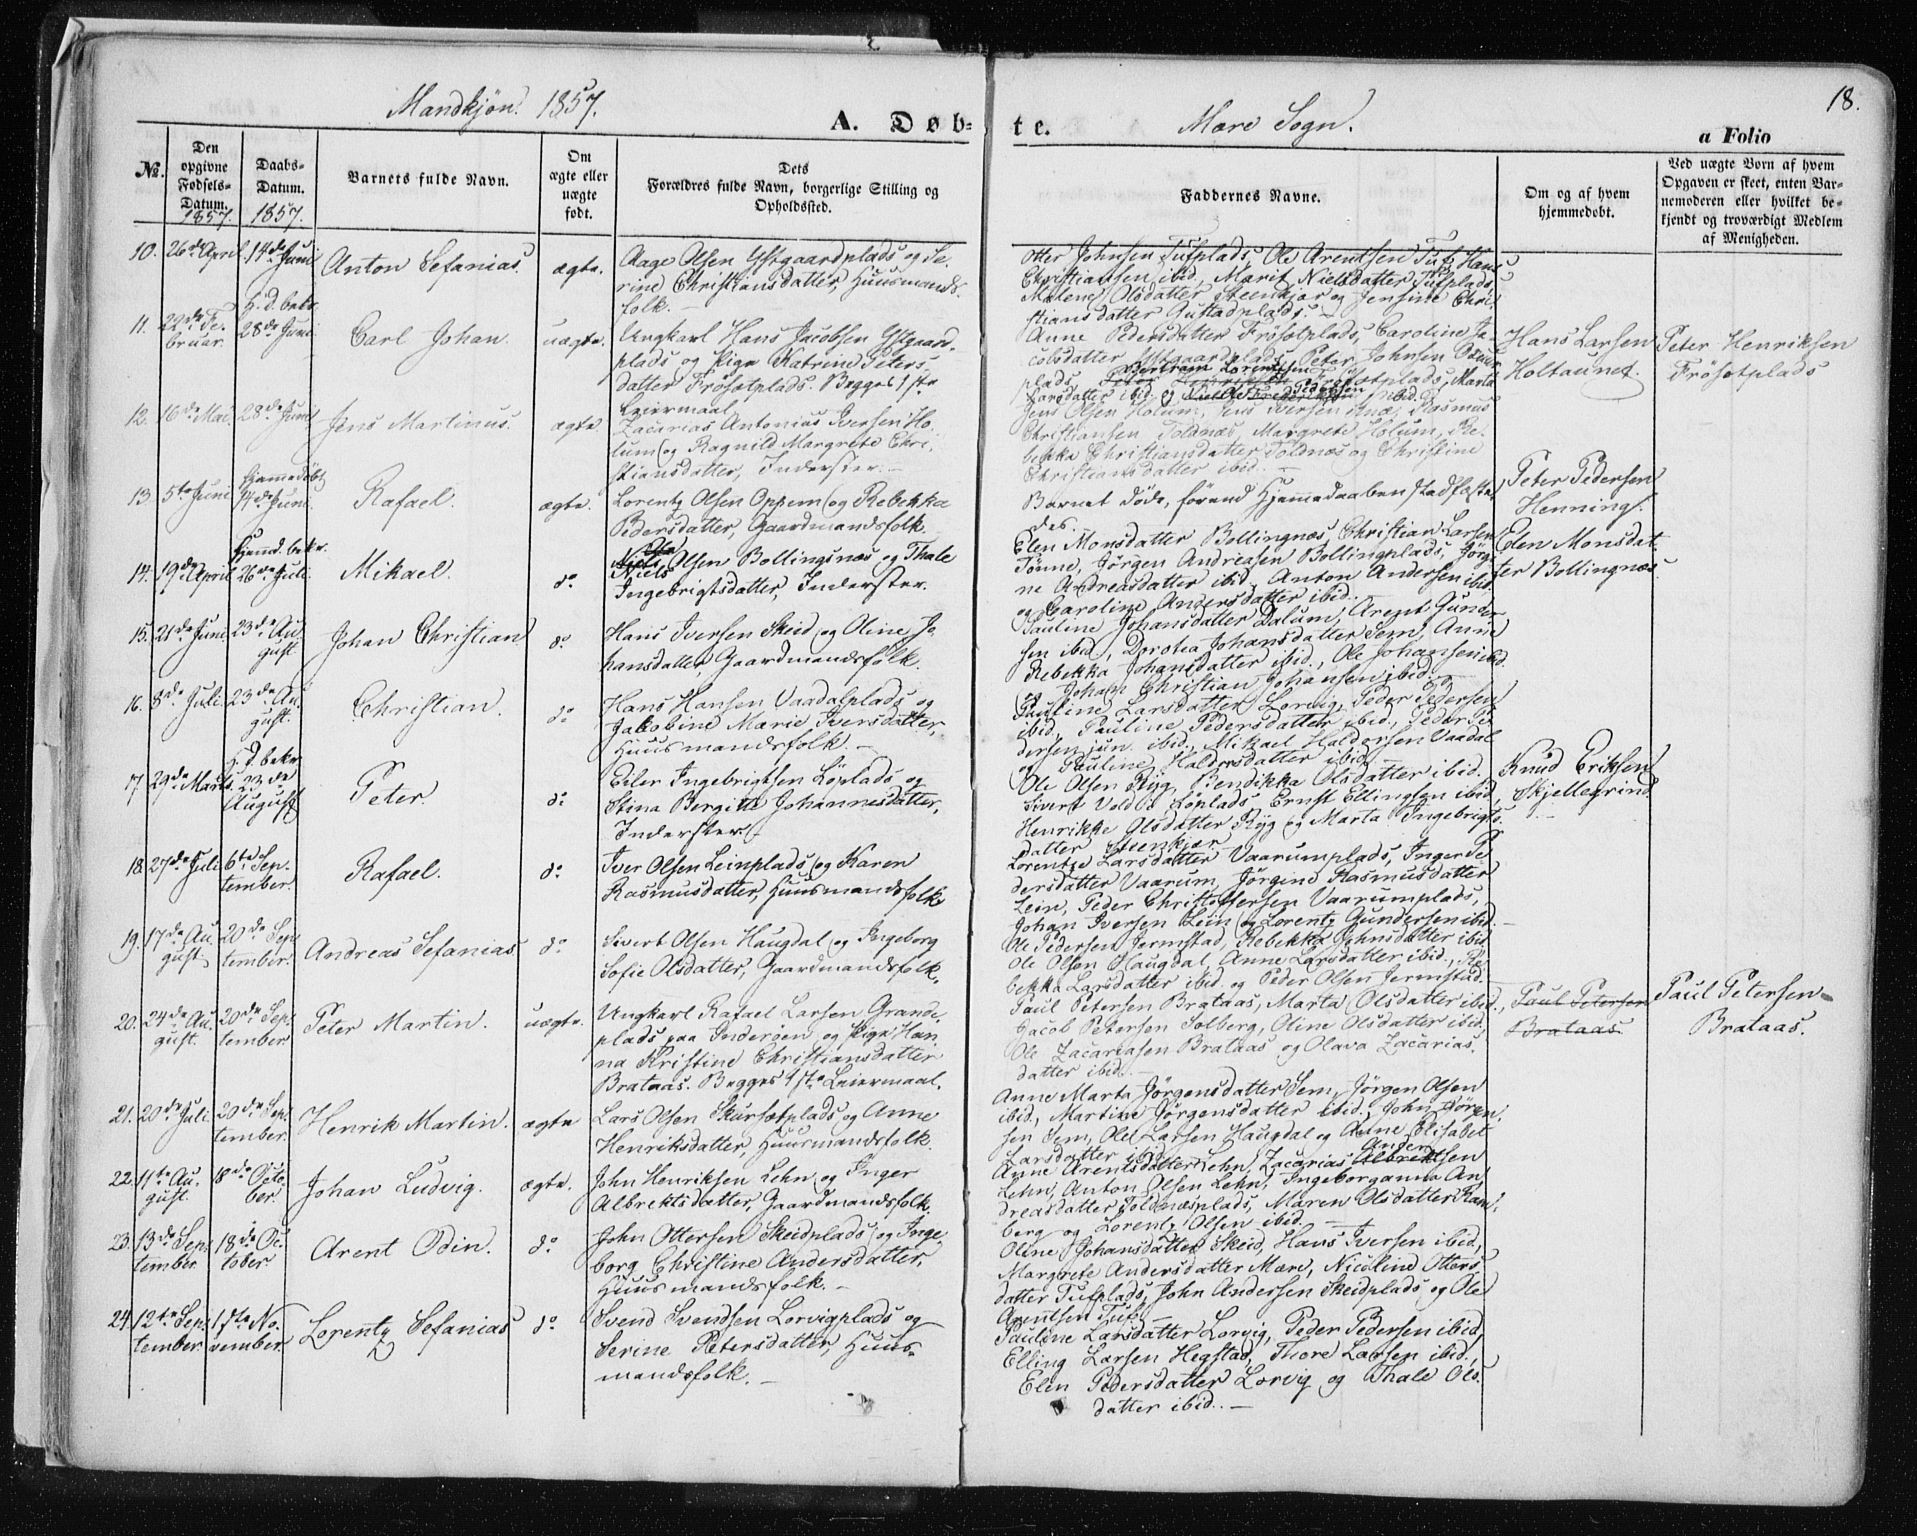 Mandkjøn. 1857.
A. Døb=
te.
Mære Sogn.
18.
a Folio
№.
Den opgivne Fødsels-Datum. 1857.
Daabs-Datum. 1857.
Barnets fulde Navn.
Om ægte eller uægte født.
Dets
Forældres fulde Navn, borgerlige Stilling og
Opholdssted.
Faddernes Navne.
Om og af hvem
hjemmedøbt.
Ved uægte Børn af hvem
Opgaven er skeet, enten Bar-
nemoderen eller hvilket be-
kjendt og troværdigt Medlem
af Menigheden.
10. 26de April 14de Juni Anton Sefanias. ægte.
Aage Olsen Ystgaardplads og Se-
rine Christiansdatter, Huusmands-
folk. —
Otter Johnsen Tufplads, Ole Arentsen Tuf, Hans
Christiansen ibid, Marit Nielsdatter Tufplads,
Malene Olsdatter Steenkjær og Jensine Chri-
stiansdatter Gustadplads. —
11. 22de Februar. H. D. bekr. 28de Juni Carl Johan. uægte.
Ungkarl Hans Jacobsen Ystgaard-
plads og Pige Katrine Peters-
datter Frösetplads. Begges 1ste
Leiermaal.
Anne Pedersdatter Frösetplads, Caroline Ja-
cobsdatter Ystgaardplads, Peter Johnsen
plads, Bertram Lorentsen Frösetplads, Marta
Larsdatter ibid og Pedersen ibid.
Hans Larsen
Holtaunet.
Peter Henriksen
Frösetplads
12. 16de Mai. 28de Juni Jens Martinus. ægte
Zacarias Antonius Iversen Ho-
lum og Ragnild Margrete Chri-
stiansdatter, Inderster. —
Jens Olsen Holum, Jens Iversen Rasmus
Christiansen Toldnæs, Margrete Holum, Re-
bekka Christiansdatter Toldnæs og Christine
Christiansdatter ibid. —
13. 5te Juni Hjemmedöbt 14de Juni. Rafael. ægte.
Lorentz Olsen Oppem og Rebekka
Persdatter, Gaardmandsfolk.
Barnet döde, förend Hjemmedaaben stadfæste-
des. —
Peter Pedersen
Hennings.
14. 19de April Hjemd. bekr. 26de Juli. Mikael. do.
Niels Olsen Bollingsnæs og Thale
Ingebrigtsdatter, Inderster.
Elen Monsdatter Bollingnæs, Christian Larsen
Tönne, Jörgen Andreasen Bollingplads, Jörgi-
ne Andreasdatter ibid, Anton Andersen ibid
og Caroline Andersdatter ibid.
Elen Monsdat-
ter Bollingnæs.
15. 21de Juni 23de August Johan Christian do.
Hans Iversen Skeid og Oline Jo-
hansdatter, Gaardmandsfolk.
Pauline Johansdatter Dalum, Arent Gunder-
sen ibid, Dorotea Johansdatter Sem, Anne
Rebekka Johansdatter ibid., Ole Johansen ibid
og Johan Christian Johansen ibid. —
16. 8de Juli. 23de August. Christian. do
Hans Hansen Vaadalplads og
Jakobine Marie Iversdatter,
Huusmandsfolk. —
Pauline Larsdatter Lorvig, Peder Pedersen
ibid, Pauline Pedersdatter ibid., Peder Pe-
dersen jun. ibid., Mikael Haldorsen Vaadal
og Pauline Haldorsdatter ibid.
17. 29de Marts. H. D. bekr. 23de August Peter. do
Eiler Ingebrigtsen Löplads og
Stina Bergitte Johannesdatter,
Inderster. —
Ole Olsen Ryg, Bendikka Olsdatter ibid.
Sivert Vold Löplads, Ernst Ellingsen ibid,
Henrikke Olsdatter Ryg og Marta Ingebrigts-
datter Steenkjær.
Knud Eriksen
Skjellegrind
18. 27de Juli 6te September. Rafael. do
Iver Olsen Leinplads og Karen
Rasmusdatter, Huusmandsfolk
Lorentze Larsdatter Vaarumplads, Inger Pe-
dersdatter Vaarum, Jörgine Rasmusdatter
Lein, Peder Christoffersen Vaarumplads,
Johan Iversen Lein og Lorentz Gundersen ibid. —
19. 17de August 20de September. Andreas Sefanias. do
Sivert Olsen Haugdal og Ingeborg
Sofie Olsdatter, Gaardmandsfolk.
Ole Pedersen Jermstad, Rebekka Johnsdatter ibid
Ole Olsen Haugdal, Anne Larsdatter ibid., Re-
bekka Larsdatter ibid. og Peder Olsen Jermstad.
20. 24de August. 20de September. Peter Martin. uægte.
Ungkarl Rafael Larsen Grande-
plads paa Inderöen og Pige Han-
na Kristine Christiansdatter
Brataas. Begges 1ste Leiermaal.
Paul Petersen Brataas, Marta Olsdatter ibid.,
Jacob Petersen Solberg, Oline Olsdatter ibid,
Ole Zacariasen Brataas og Olava Zacarias-
datter ibid. —
Paul Petersen
Brataas.
Paul Petersen
Brataas.
21. 20de Juli. 20de September. Henrik Martin. ægte
Lars Olsen Skursætplads og Anne
Henriksdatter, Huusmandsfolk.
Anne Marta Jörgensdatter Sem, Jörgen Olsen
ibid., Martine Jörgensdatter ibid., John Jörgen-
sen Sem, Ole Larsen Haugdal og Anne Elisabet
Larsdatter ibid.
22. 11te August. 18de October. Johan Ludvig. ægte.
John Henriksen Lehn og Inger
Albrektsdatter, Gaardmandsfolk.
Anne Arentsdatter Lehn, Zacarias Andersen
Lehn, Anton Olsen Lehn, Ingeborganna An-
dreasdatter Toldnæsplads, Maren Olsdatter Ram-
berg og Lorentz Olsen ibid. —
23. 13de September 18de October. Arent Odin. do.
John Ottersen Skeidplads og Inge-
borg Christine Andersdatter,
Huusmandsfolk. —
Oline Johansdatter Skeid, Hans Iversen ibid,
Margrete Andersdatter Mære, Nicoline Otters-
datter Tufplads, John Andersen Skeidplads og Ole
Arentsen Tuf. —
24. 12te September. 1ste November. Lorentz Sefanias do
Svend Svendsen Lorvigplads og
Serine Petersdatter, Huus-
mandsfolk. —
Pauline Larsdatter Lorvig, Peder Pedersen ibid,
Elling Larsen Hegstad, Thore Larsen ibid.,
Elen Pedersdatter Lorvig og Thale Ols-
datter ibid. —